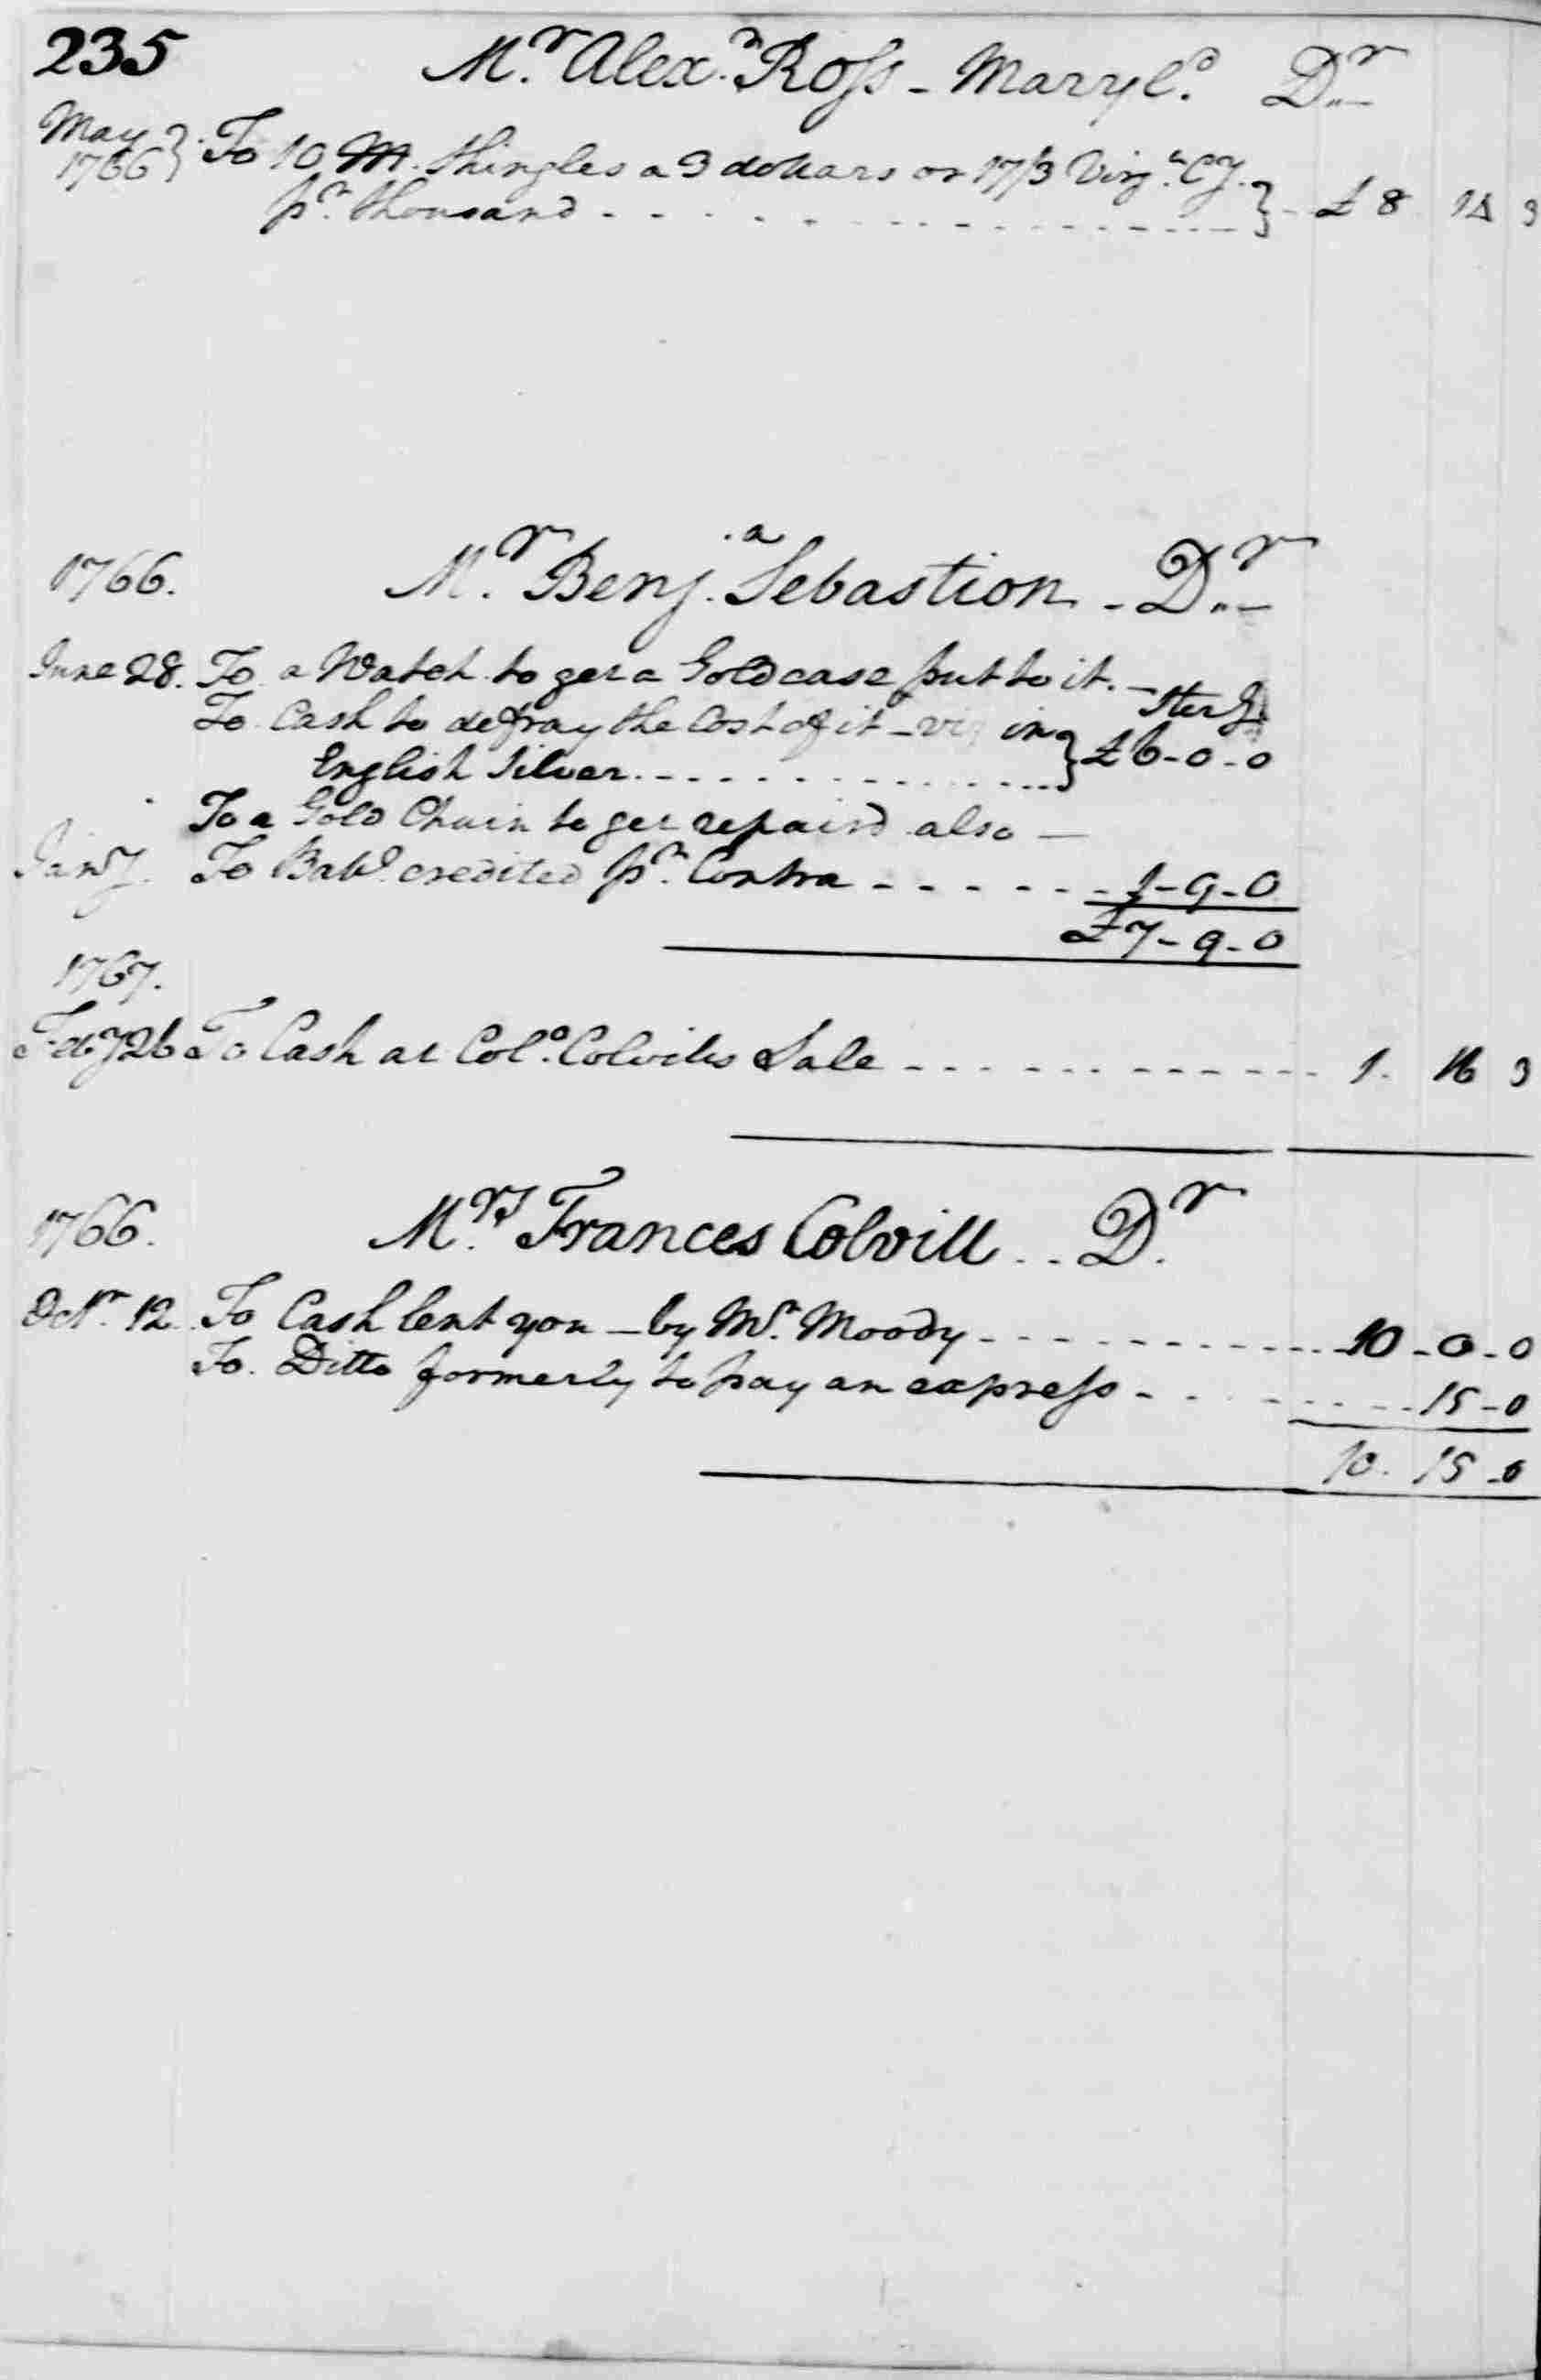 235 Mr. Alexr. Ross - Maryld. Dr
May 1766 } To 10 M. Shingles a 3 dollars or 17/3 Virga. Cy.
pr. thousand - - - - } - £ 8 14 3
1766. Mr. Benja. Sebastion - Dr
June 28. To a Watch to get a Gold case put to it. - Sterlg
To Cash to defray the Cost of it - viz in } £6-0-0
English Silver - - - -
To a Gold Chain to get repaird also -
Jany. To Balle. credited pr. Contra - - - - 1-9-0
£7-9-0
1767.
Feby 26 To Cash at Colo. Colvills Sale - - - - 1. 16 3
1766. Mrs. Frances Colvill - - Dr.
Octr. 12. To Cash lent you - by Mr. Moody - - - - 10-0-0
To. Ditto formerly to pay an express - - - - 15-0
10. 15-0